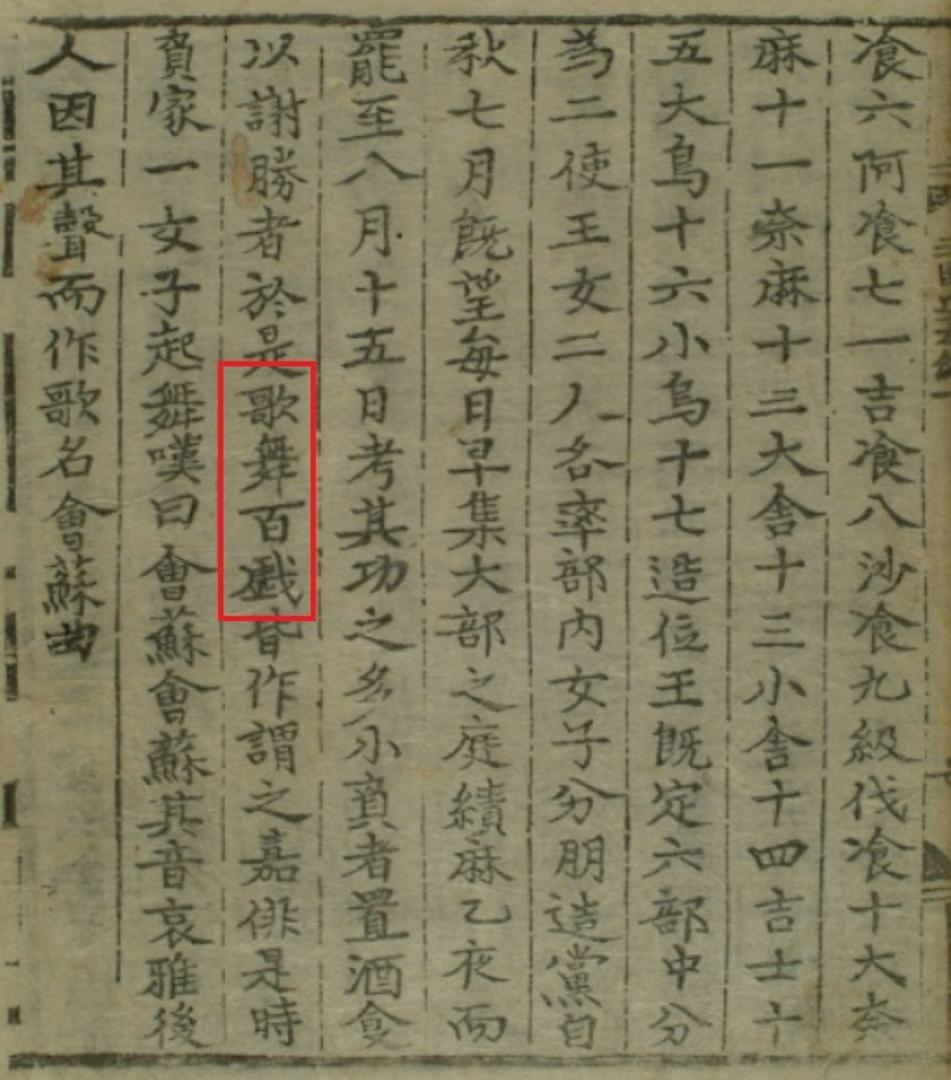 飡六阿飡七一吉飡八沙飡九級伐飡十大奈
麻十一奈麻十三大舍十三小舍十四吉士十
五大烏十六小烏十七造位王既定六部中分
為二使王女二人各率部内女子分朋造黨自
秋七月既望每日早集大部之庭績麻乙夜而
罷至八月十五日考其功之多小負者置酒食
以謝勝者於是歌舞百戲皆作謂之嘉俳是時
負家一女子起舞嘆曰會蘇會蘇其音哀雅後
人因其聲而作歌名會蘇曲